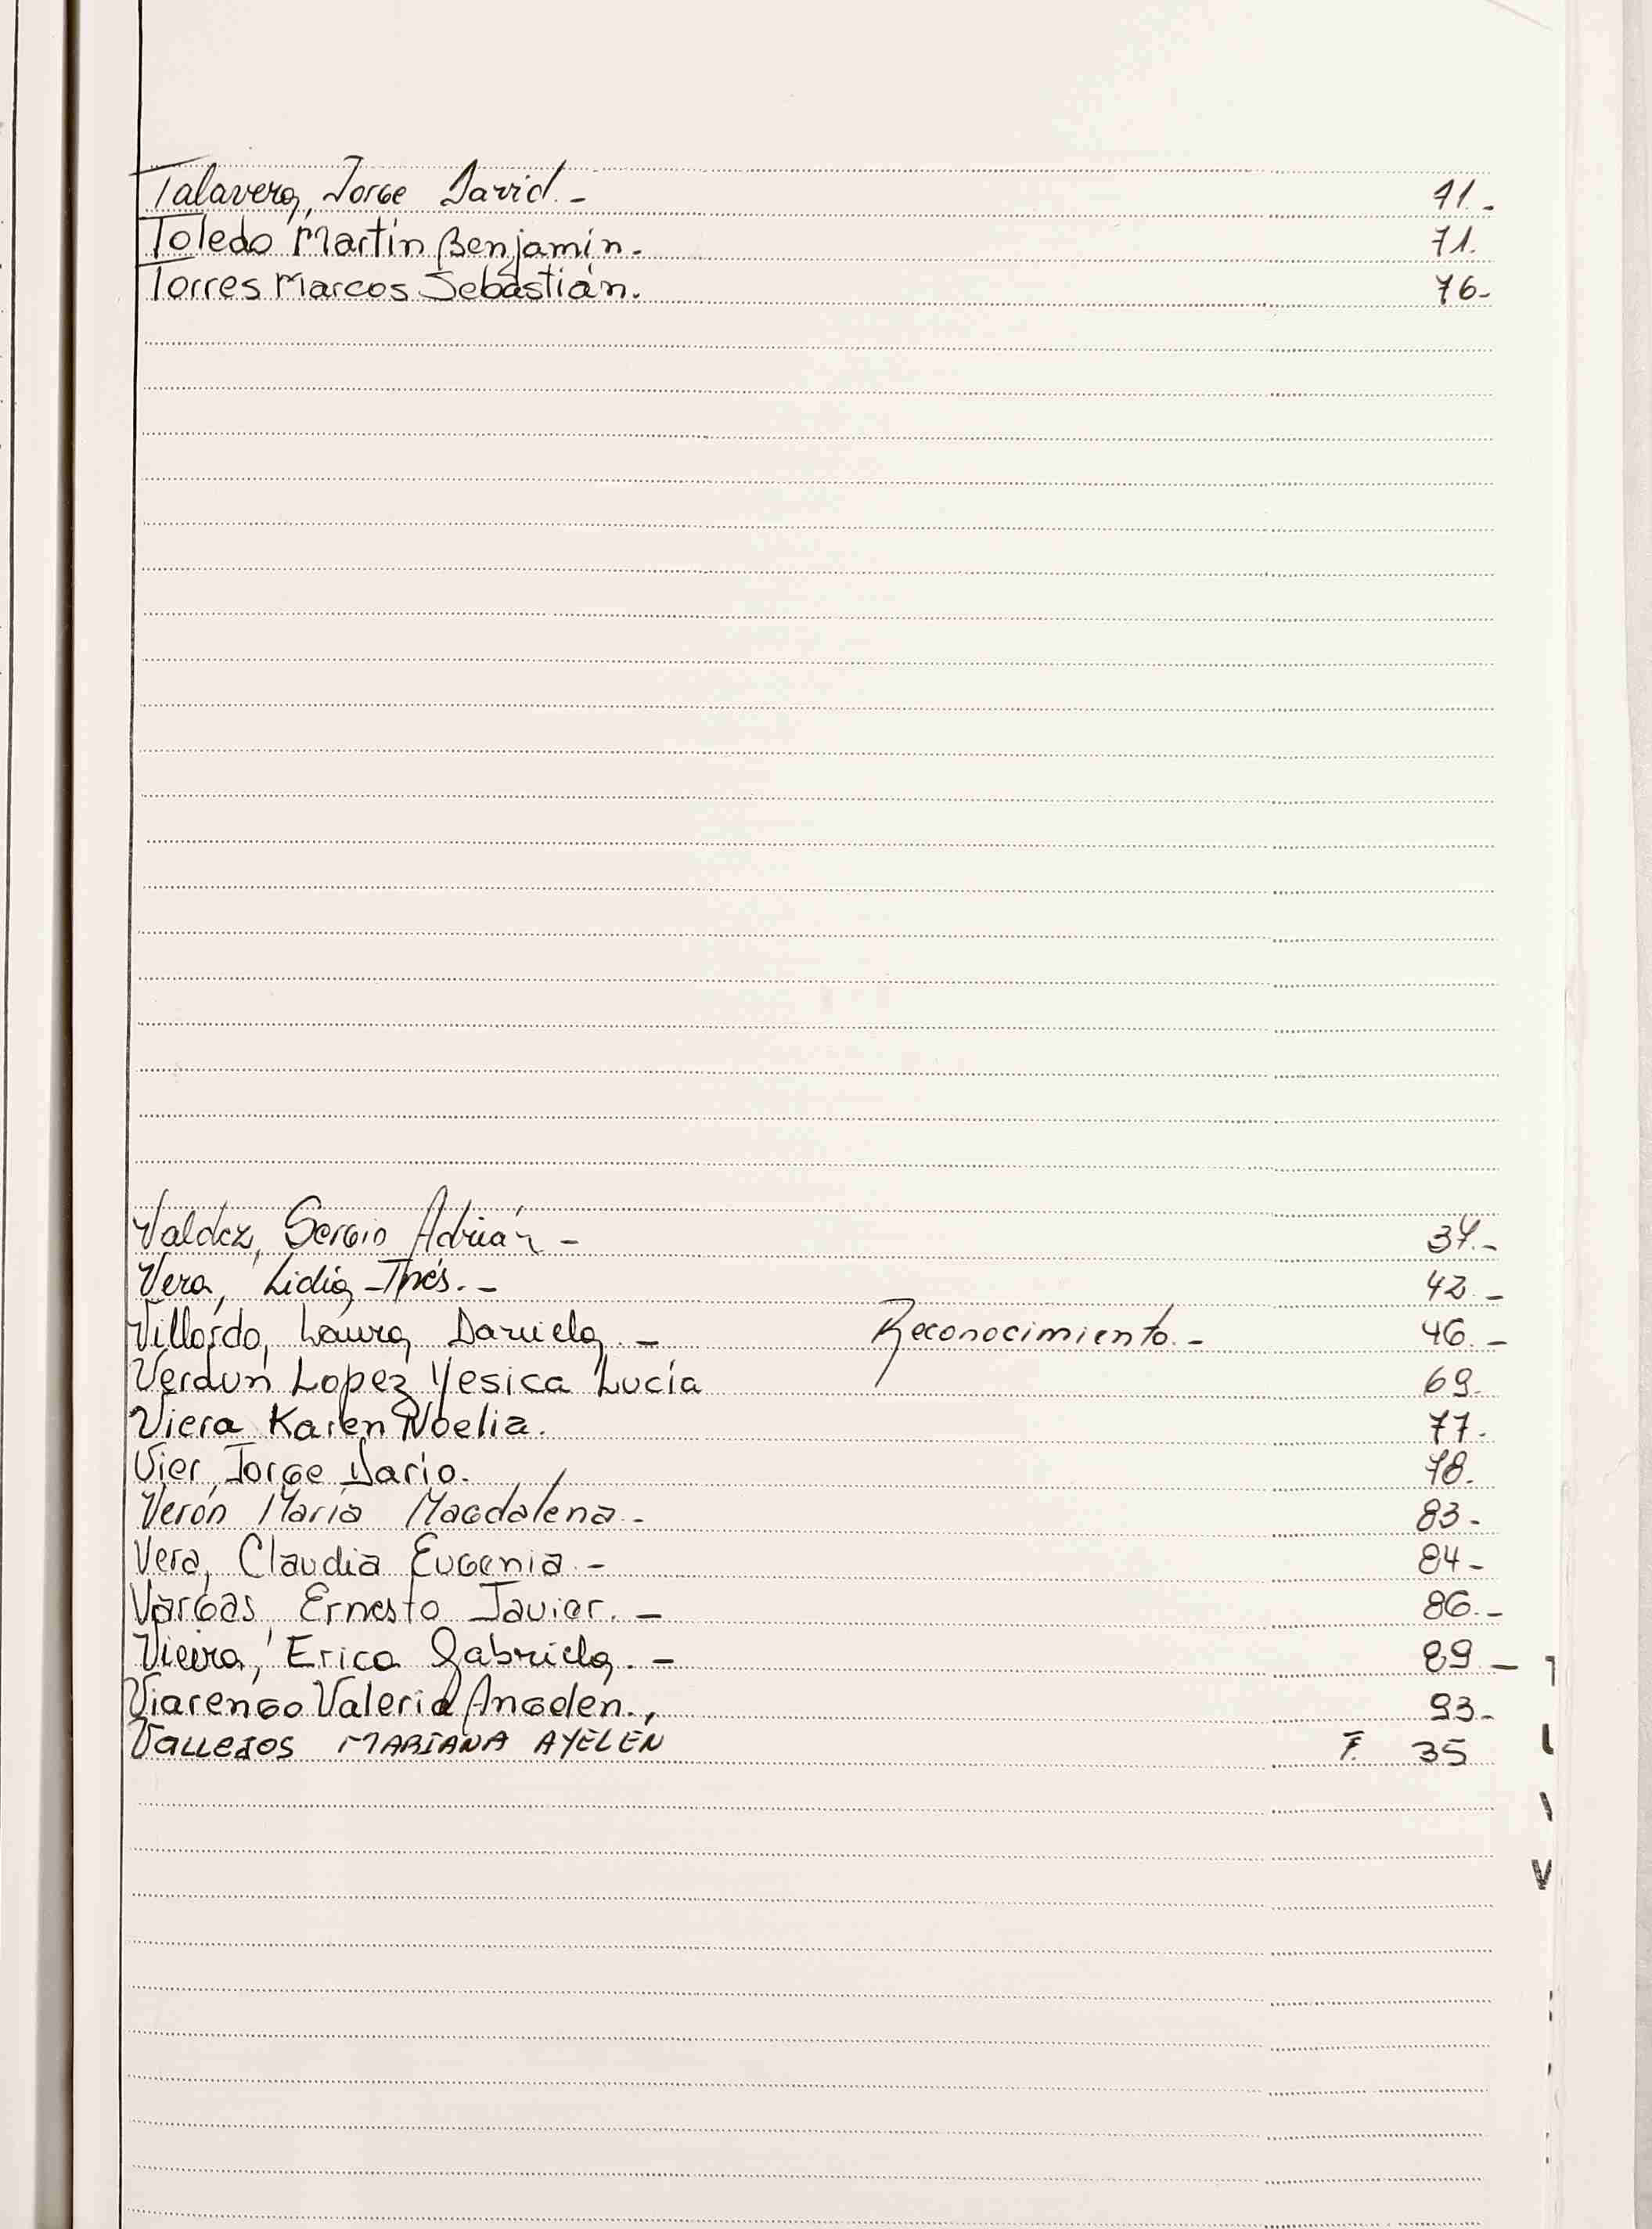 Talavera, Jorge David.- 41.-
Toledo Martín Benjamín. 71.
Torres Marcos Sebastián. 76-
Valdez, Sergio Adrián - 37.-
Vera, Lidia Inés.- 42.-
Villordo, Laura Daniela.- Reconocimiento.- 46.-
Verdún Lopez Yesica Lucía 69.
Viera Karen Noelia. 77.
Vier, Jorge Dario. 78.
Verón María Magdalena.- 83-
Vera, Claudia Eugenia.- 84-
Vargas, Ernesto Javier.- 86.-
Vieira, Erica Gabriela.- 89-
Viarengo Valeria 93-
Vallejos MARIANA AYELÉN F. 35